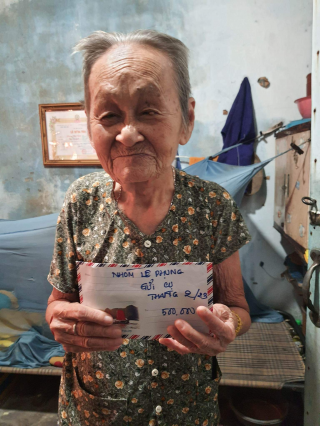 NHÓM LÊ PHỤNG
GỬI CỤ
THÁNG 2/23
500,000